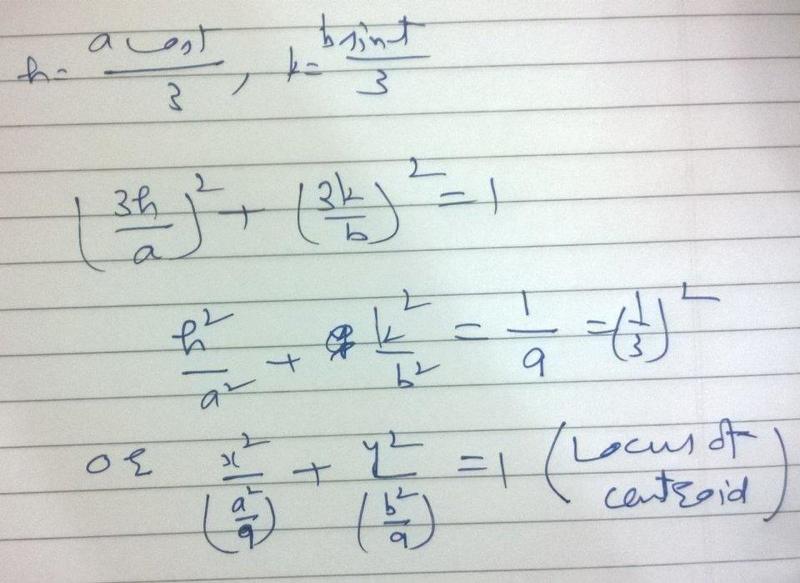 h = a cost / 3 , k = b sint / 3
(3h / a)² + (3k / b)² = 1
h² / a² + k² / b² = 1 / 9 = (1 / 3)²
OR x² / (a² / 9) + y² / (b² / 9) = 1 (Locus of centroid)